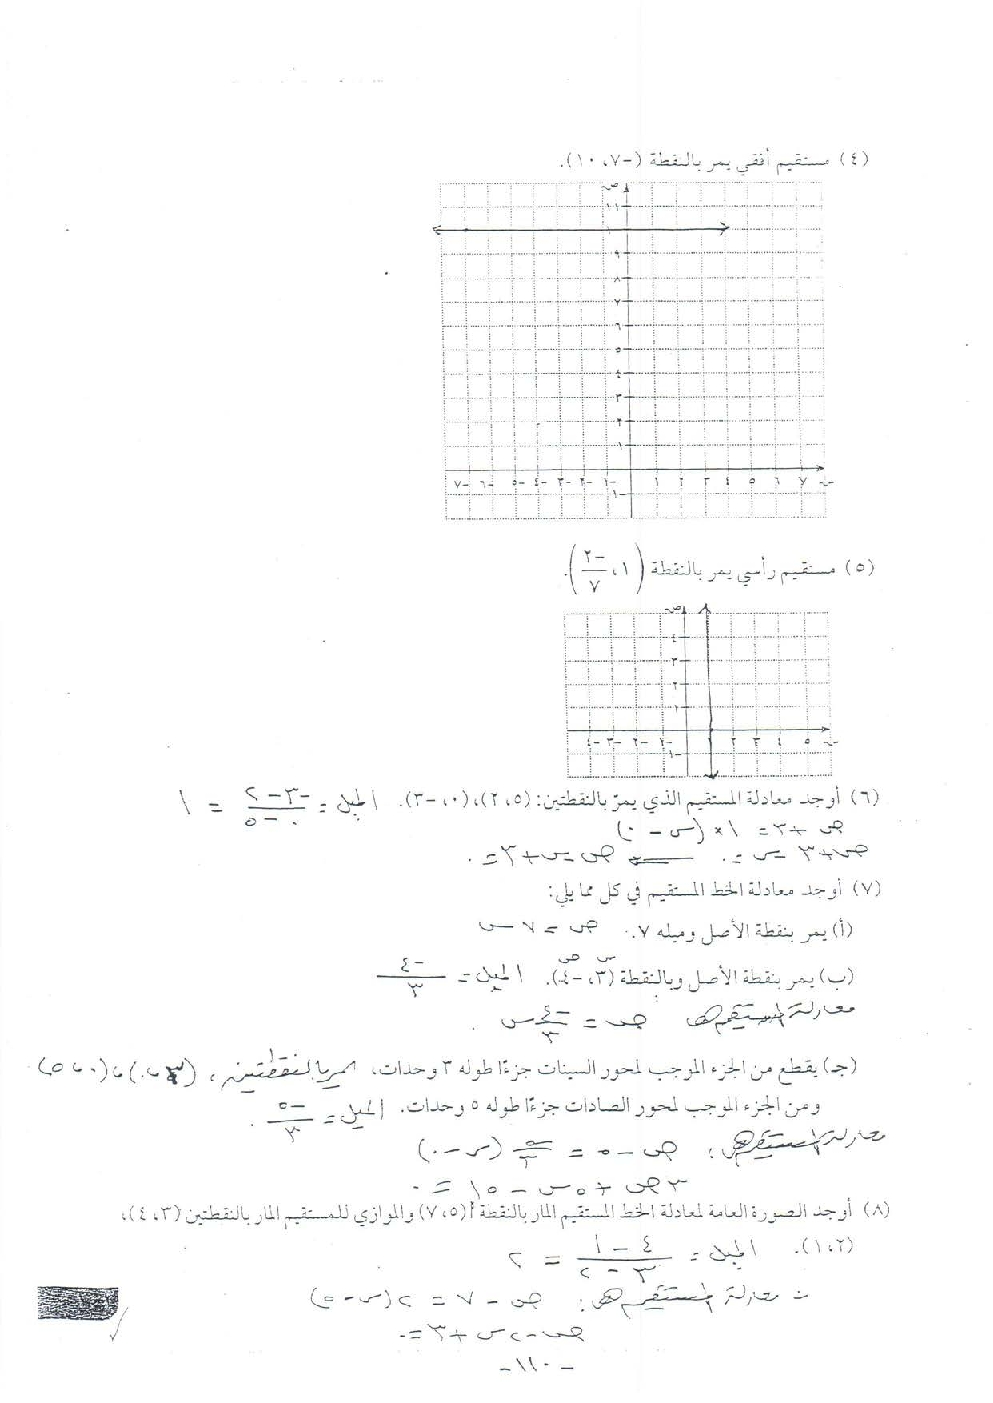 (٤) مستقيم أفقي يمر بالنقطة (-٧، ١٠).
ص
١١
١٠
٩
٨
٧
٦
٥
٤
٣
٢
١
-٧ -٦ -٥ -٤ -٣ -٢ -١ ١ ٢ ٣ ٤ ٥ ٦ ٧ س
-١
(٥) مستقيم رأسي يمر بالنقطة (١، -٢/٧).
ص
٤
٣
٢
١
-٤ -٣ -٢ -١ ١ ٢ ٣ ٤ ٥ س
-١
(٦) أوجد معادلة المستقيم الذي يمرّ بالنقطتين: (٥، ٢)، (٠، -٣). الميل = (-٣ - ٢)/(٠ - ٥) = ١
ص + ٣ = ١ × (س - ٠)
ص + ٣ - س = ٠ ⟸ ص - س + ٣ = ٠
(٧) أوجد معادلة الخط المستقيم في كل مما يلي:
(أ) يمر بنقطة الأصل وميله ٧. ص = ٧ س
س ص
(ب) يمر بنقطة الأصل وبالنقطة (٣، -٤). الميل = -٤/٣
معادلة المستقيم هي ص = -٤/٣ س .
(جـ) يقطع من الجزء الموجب لمحور السينات جزءًا طوله ٣ وحدات، يمر بالنقطتين، (٣، ٠)، (٠، ٥).
ومن الجزء الموجب لمحور الصادات جزءًا طوله ٥ وحدات. الميل = -٥/٣ .
معادلة المستقيم هي: ص - ٥ = -٥/٣ (س - ٠)
٣ ص + ٥ س - ١٥ = ٠
(٨) أوجد الصورة العامة لمعادلة الخط المستقيم المار بالنقطة أ(٥، ٧) والموازي للمستقيم المار بالنقطتين (٣، ٤)،
(٢، ١). الميل = (٤ - ١)/(٣ - ٢) = ٢
∴ معادلة المستقيم هي: ص - ٧ = ٢ (س - ٥)
ص - ٢ س + ٣ = ٠
- ١١٠ -